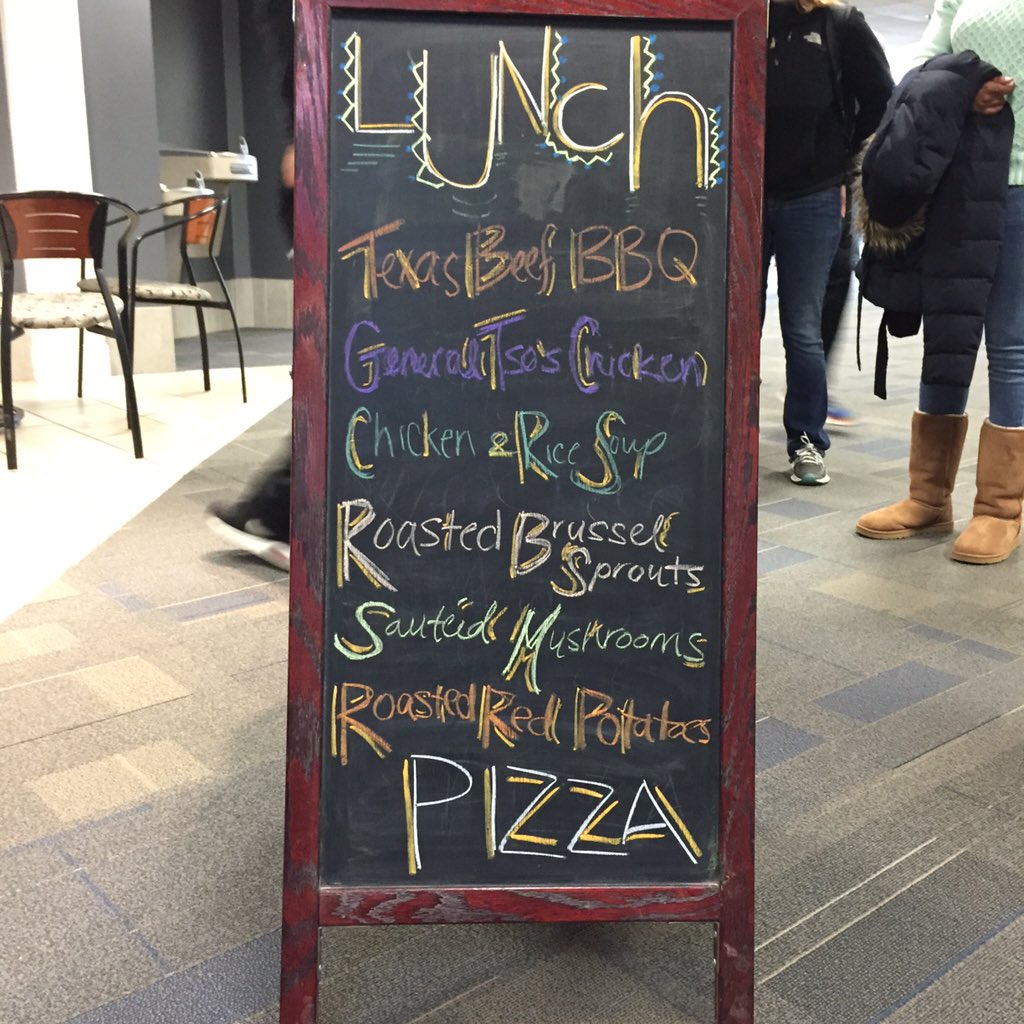 LUNch
Texas Beef BBQ
General Tso's Chicken
Chicken & Rice Soup
Roasted Brussels
Sprouts
Sautéid Mushrooms
Roasted Red Potatoes
PIZZA